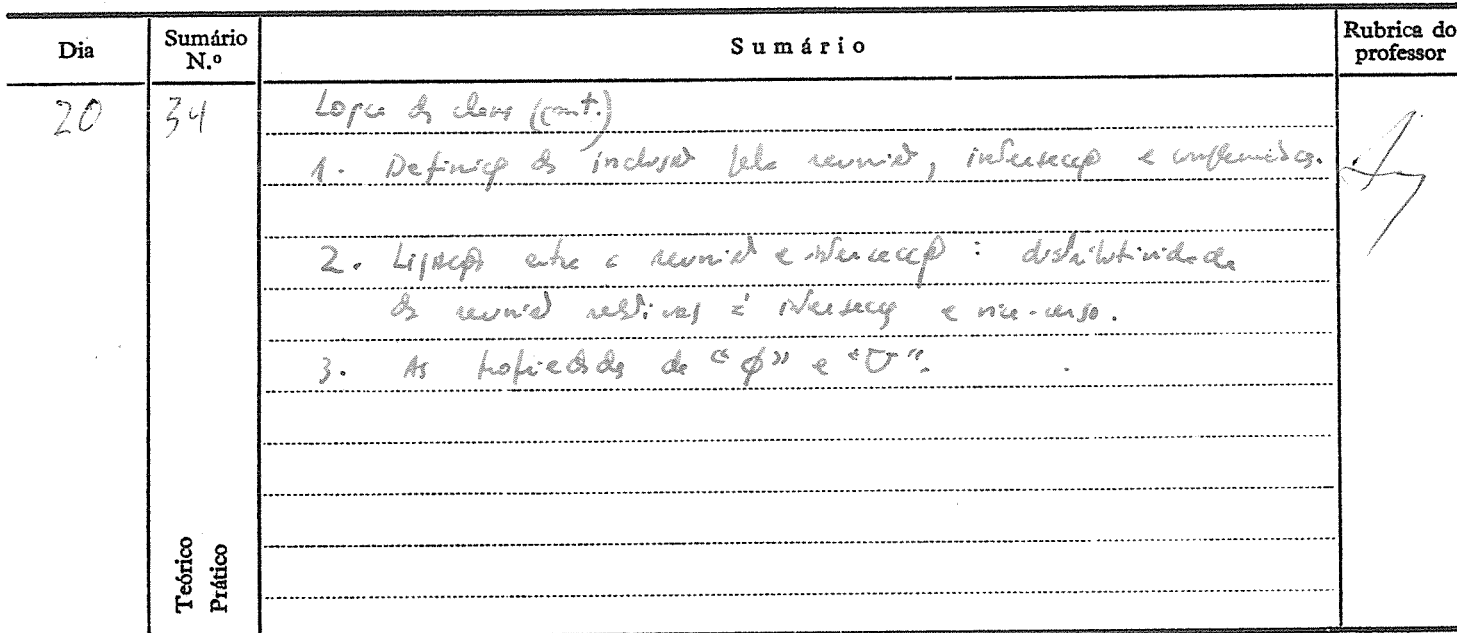 Dia
Sumário N.º
Sumário
Rubrica do professor
20
34
Logica das classes (cont.)
1. Definição da inclusão pela reunião, intersecção e complementação.
2. Ligação entre a reunião e intersecção : distributividade
da reunião relativas à intersecção e vice-verso.
3. As propriedades de "ϕ" e "U".
Teórico
Prático